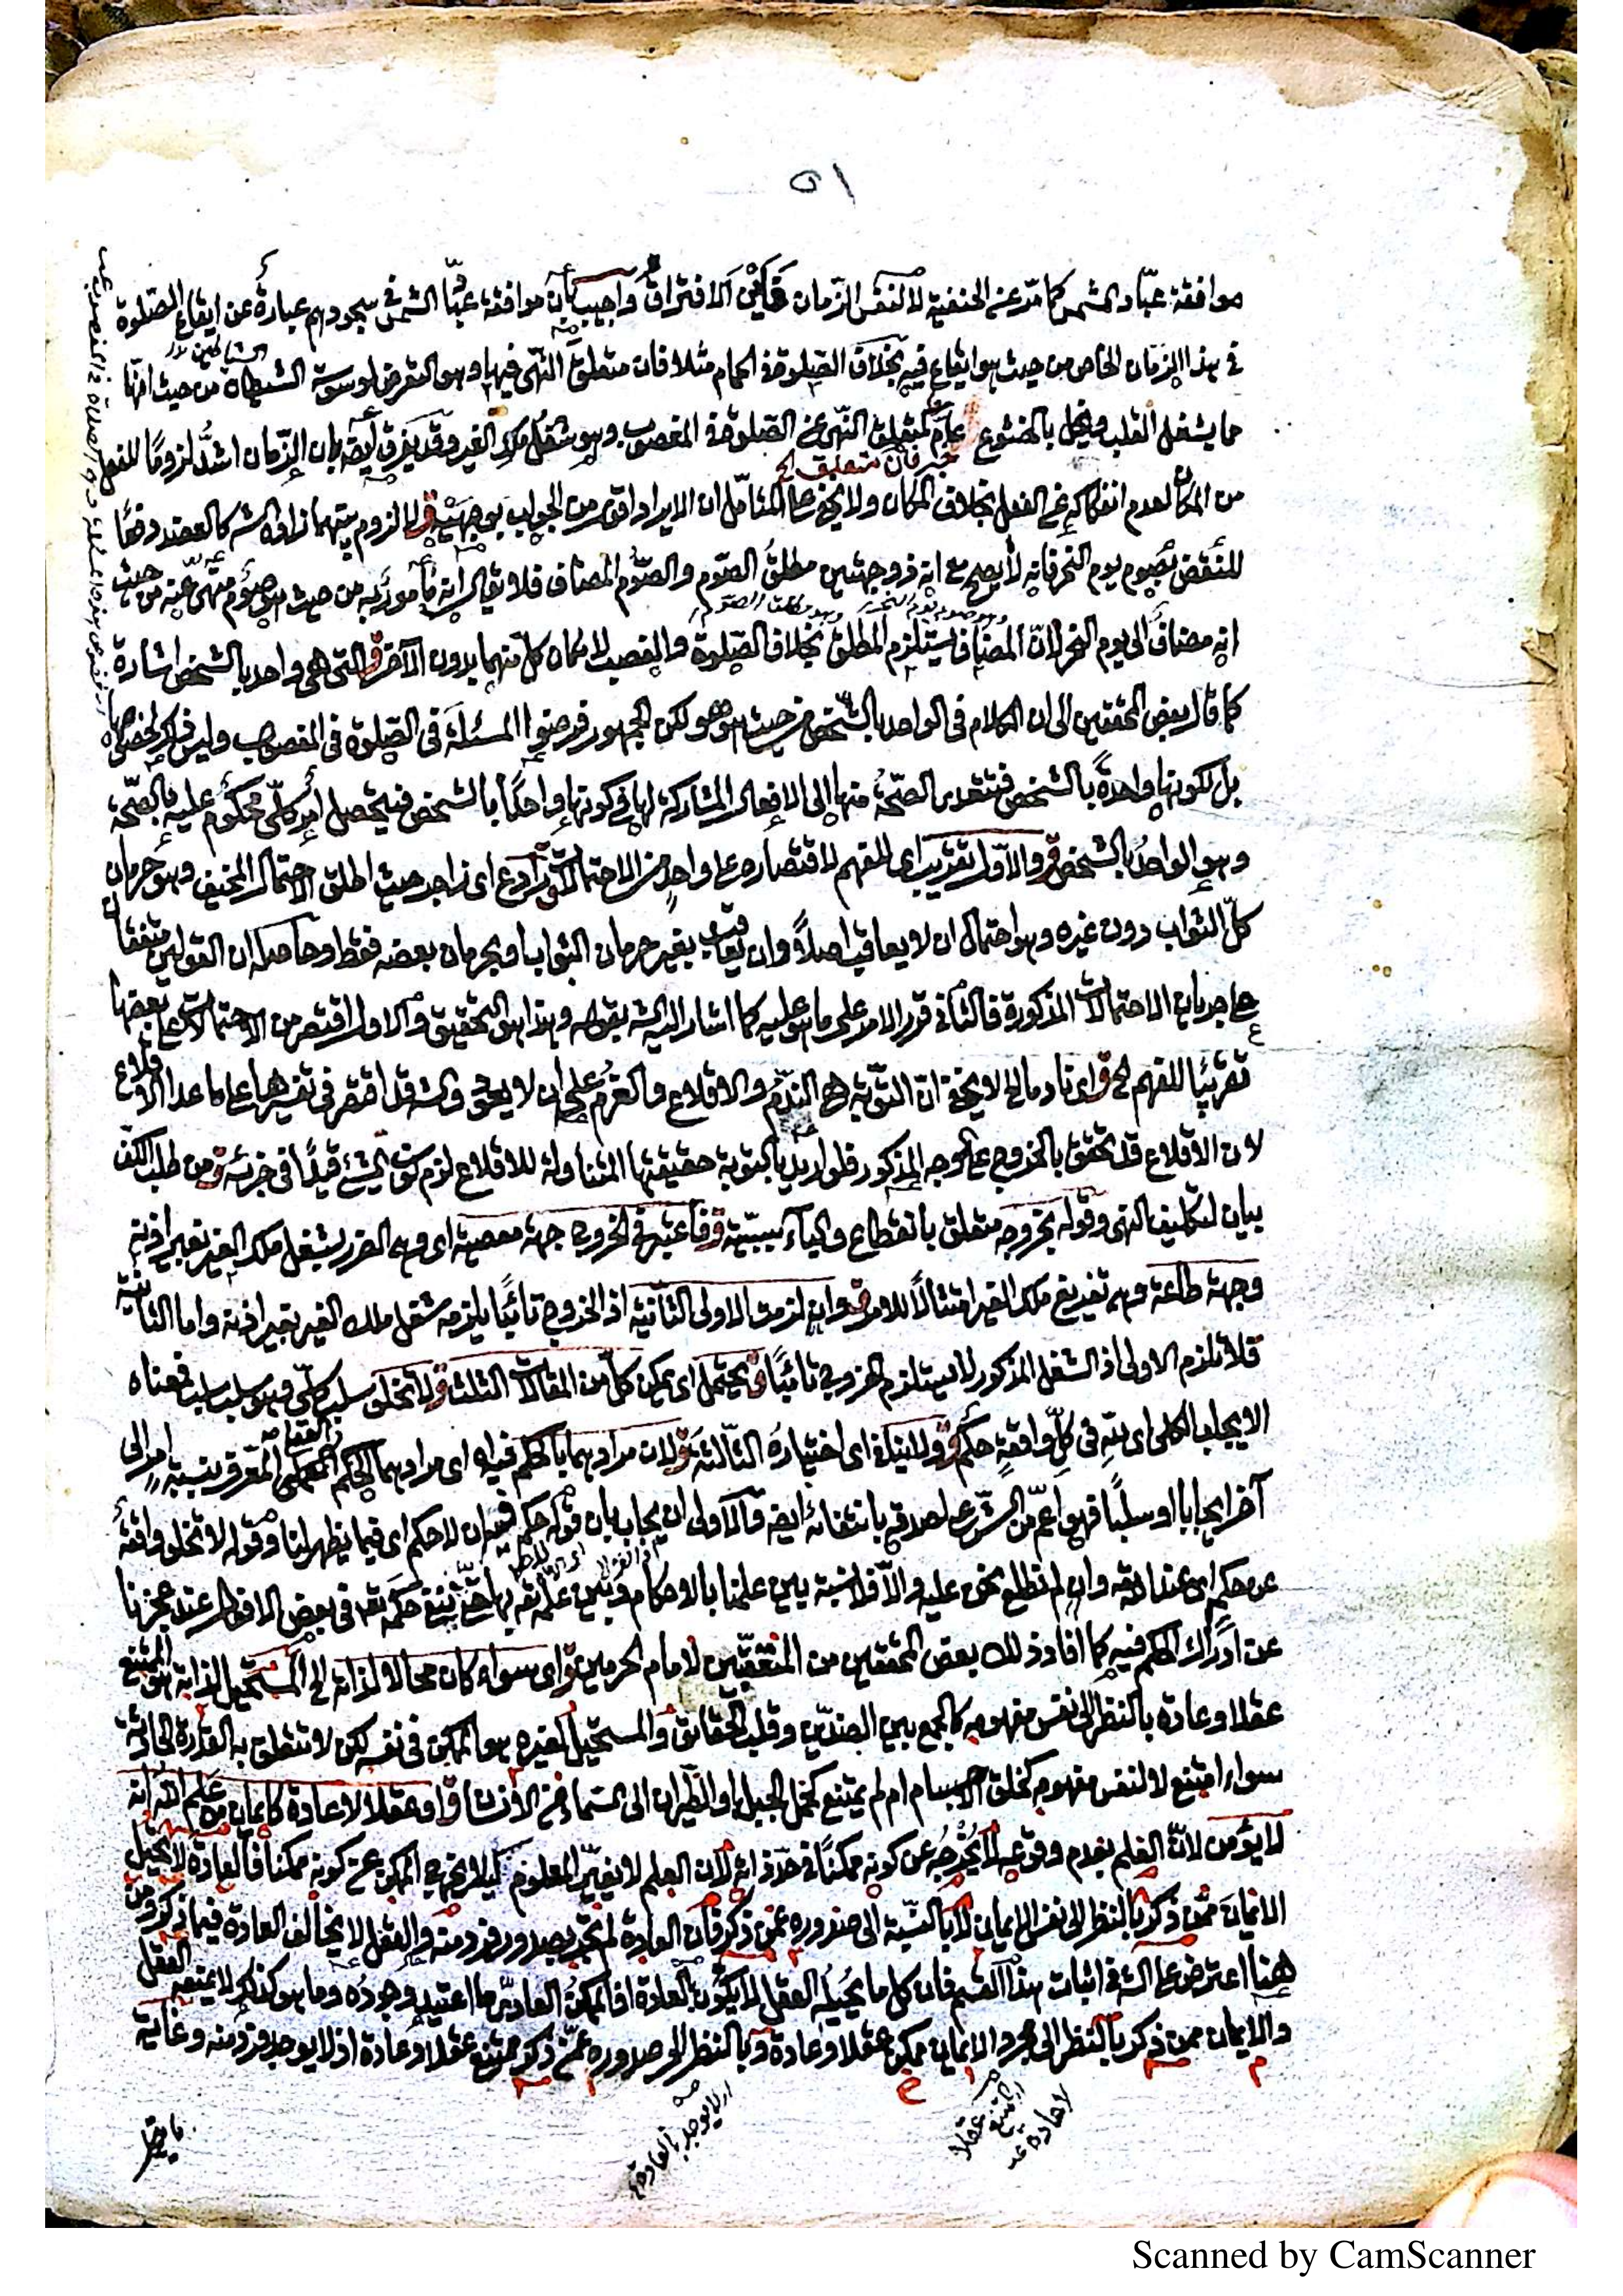 ٥١
موافقة عبّاد الشمس كما مرّ عند الحنفية لا لنفس الزّمان الافتراق واجيب بان موافقة عبّاد الشمس فى سجودهم عبارة عن ايقاع الصّلوة
فى هذا الزمان الخاص من حيث هو ايقاع فيه بخلاف الصّلوة فى الحمام مثلا فان متعلق النّهى فيها وهو التعرض لوسوسة الشيطان من حيث انّها
مما يشغل القلب ويخل بالخشوع عامّ كمتعلق النّهى عن الصّلوة فى المغصوب وهو شغل ملك الغير وقد يفرق ايضا بان الزّمان اشدّ لزوما للفعل
من المكان لعدم انفكاكه عن الفعل بخلاف المكان ولا يخفى على المتأمّل ان الايراد اقوى من الجواب بوجهيه ق لا لزوم بينهما زاده الش كالعضد دفعًا
للنقض بصوم يوم النحر فانه لا يصح مع انه ذو جهتين مطلق الصّوم والصّوم المضاف فلا يقال انه مأمور به من حيث هو صوم منهىّ عنه من حيث
انه مضاف الى يوم النحر لانّ المضاف يستلزم المطلق بخلاف الصّلوة والغصب لامكان كلّ منهما بدون الآخر ق التى هى واحد بالشخص اشارة
كما قال بعض المحققين الى ان الكلام فى الواحد بالشّخص من حيث هو هو لكن الجمهور فرضوا المسئلة فى الصّلوة فى المغصوب وليس ذلك لخصوصها
بل لكونها واحدةً بالشخص فتتعدى الصّحّة منها الى الافعال المشاركة لها فى كونها واحدًا بالشخص فيحصل أمر كلّى محكوم عليه بالصّحّة
وهو الواحد بالشخص ق والاوّل تقريب اى للفهم لاقتصاره على واحد من الاحتمالات ق رادع اى زاجر حيث اطلق الاحتمال المخيف وهو حرمان
كلّ الثواب دون غيره وهو احتمال ان لا يعاقب اصلاً وان يعاقب بغير حرمان الثواب او بحرمان بعضه فقط وحاصله ان القولين متفقان
على جريان الاحتمالات المذكورة فالثانى قرر الامر على ما هو عليه كما اشار اليه الش بقوله وهذا هو التحقيق والاول اقتصر من الاحتمالات على بعضها
تقريبًا للفهم الخ ق اى نادما الخ لا يخفى انّ التّوبة هى النّدم والاقلاع والعزم على ان لا يعود والش قد اقتصر فى تفسيرها على ما عدا الاقلاع
لان الاقلاع قد تحقق بالخروج على الوجه المذكور فلو اريد بالتوبة حقيقتها المتناولة للاقلاع لزم كون الشئ قيدًا فى جزئه ق من طلب الكف
بيان لتكليف النهى وقوله بخروجه متعلق بانقطاع والباء سببيّة ق فاعتبر فى الخروج جهة معصية اى وهى الضرر بشغل ملك الغير بغير اذنه
وجهة طاعة وهى تفريغ ملك الغير امتثالاً للامر ق وان لزمت الاولى الثّانية اذ الخروج تائبًا يلزمه شغل ملك الغير بغير اذنه واما الثانية
فلا تلزم الاولى اذ الشغل المذكور لا يستلزم الخروج تائبًا ق يحتمل اى يمكن كل من المقالات الثلث ق لا تخلو سلب كلّى وهو سلب سلب فمعناه
الايجاب الكلى اى لله فى كلّ واقعةٍ حكم ق ولا ينافى اى اختياره الثّالثة ق لان مرادهما بالحكم فيه اى مرادهما الحكم المعرف بنسبة امر الى
آخر ايجابا او سلبًا فهو اعمّ من الشّرعى لصدقه بانتفائه ايضا والاولى ان يجاب بان قوله حكم الله ان لا حكم اى فيما يظهر لنا وقوله لا تخلو واقعة
عن حكم اى عند الله وان لم نطلع نحن عليه والّا فلا نسبة بين علمنا بالاحكام وبين علمه تعالى بها حتى ننفى حكمه تعالى فى بعض الافعال عند عجزنا
عن ادراك الحكم فيه كما افاد ذلك بعض المحققين من المتعقّبين لامام الحرمين ق اى سواء كان محالا لذاته الخ المستحيل لذاته هو الممتنع
عقلا وعادة بالنظر الى نفس مفهومه كالجمع بين الضدّين وقلب الحقائق والمستحيل لغيره هو الممكن فى نفسه لكن لا تتعلق به القدرة الحادثة
سواء امتنع لا لنفس مفهومه كخلق الاجسام ام لم يمتنع كحمل الجبل او الطّيران الى السّماء من الانسان ق او عقلا لا عادة كايمان من علم الله انه
لا يؤمن لانّ العلم بعدم وقوعه لا يخرجه عن كونه ممكنًا فى حدّ ذاته لان العلم لا يغيّر المعلوم كيلا يخرج الممكن عن كونه ممكنا فالعادة لا تحيل
الايمان ممن ذكر بالنظر الى نفس الايمان لا بالنسبة الى صدوره عمن ذكر فان العادة لم تجر بصدور فرد منه والعقل لا يخالف العادة فيما ذكر ومن
ههنا اعترض على الش فى اثبات هذا القسم فان كل ما يحيله العقل لا يكون بالعادة اذ الممكن العادىّ ما اعتيد وجوده وما هو كذلك لا يمنعه العقل
والايمان ممن ذكر بالنظر الى مجرد الايمان ممكن عقلا وعادة وبالنظر الى صدوره عمّن ذكر ممتنع عقلا وعادة اذ لا يوجد فرد منه وغاية
اى لا يوجد بالعادة
اى امتنع عقلا
لا عادة
Scanned by CamScanner